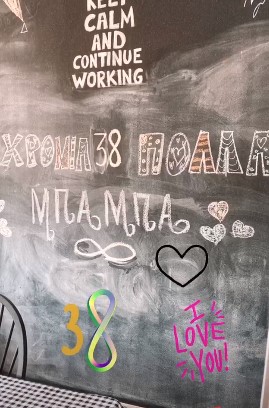 KEEP
CALM
AND
CONTINUE
WORKING
ΧΡΟΝΙΑ 38 ΠΟΛΛΑ
ΜΠΑΜΠΑ
38
I
LOVE
YOU!